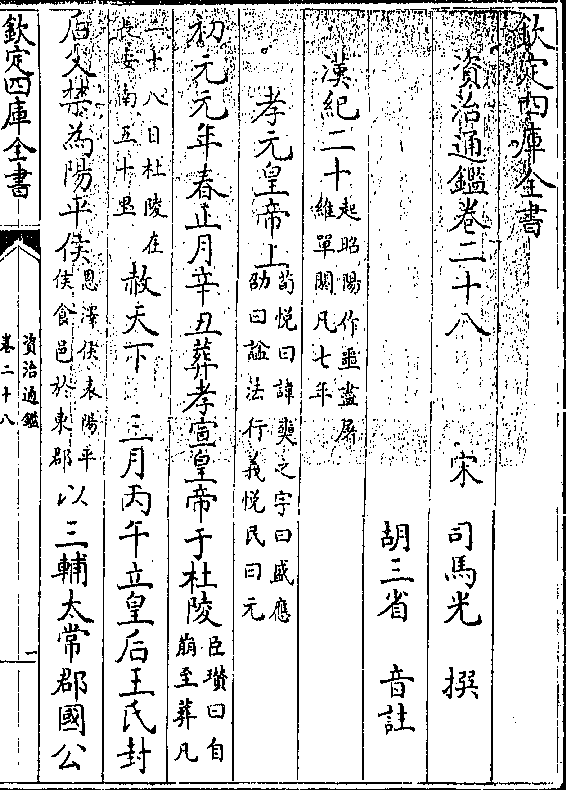 欽定四庫全書
資治通鑑卷二十八
宋 司馬光 撰
胡三省 音註
漢紀二十起昭陽作噩盡屠維單閼凡七年
孝元皇帝上荀悅曰諱奭之字曰盛應劭曰諡法行義悅民曰元
初元元年春正月辛丑葬孝宣皇帝于杜陵臣瓚曰自崩至葬凡
二十八日杜陵在長安南五十里赦天下 三月丙午立皇后王氏封
后父禁為陽平侯恩澤侯表陽平侯食邑於東郡以三輔太常郡國公
欽定四庫全書
資治通鑑
卷二十八
一